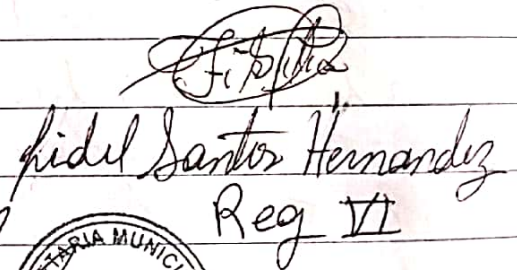 Fidel Santos Hernandez
Reg VI
TARIA MUNICI